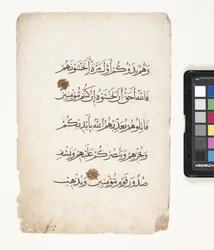 وهم بدوكم أول مرة أتخشونهم
فالله أحق أن تخشوه إن كنتم مؤمنين
قاتلوهم يعذبهم الله بأيديكم
ويخزهم وينصركم عليهم ويشف
صدور قوم مؤمنين ويذهب